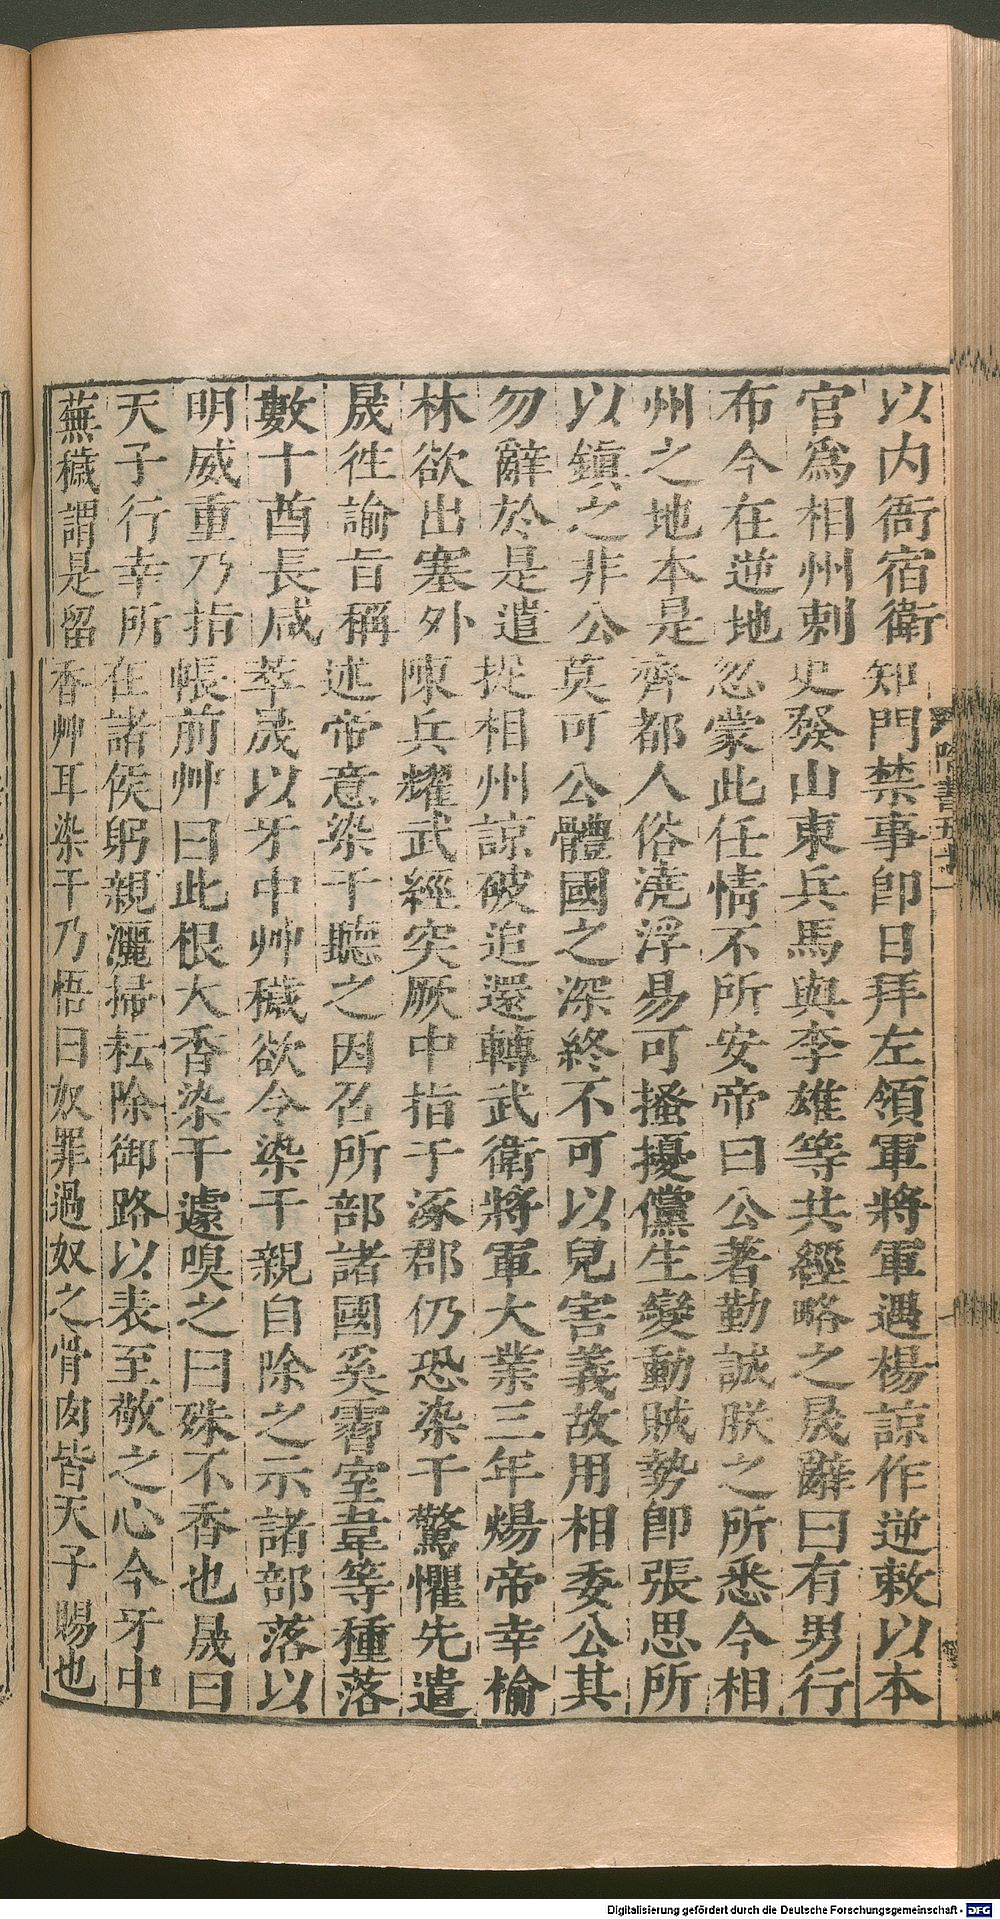 以内衙宿衛知門禁事即日拜左領軍將軍遇楊諒作逆敕以本
官爲相州刺史發山東兵馬與李雄等共經略之晟辭曰有男行
布今在逆地忽蒙此任情不所安帝曰公著勤誠朕之所悉今相
州之地本是齊都人俗澆浮易可搔擾儻生變動賊勢即張思所
以鎮之非公莫可公體國之深終不可以兒害義故用相委公其
勿辭於是遣捉相州諒破追還轉武衛將軍大業三年煬帝幸榆
林欲出塞外陳兵耀武經突厥中指于涿郡仍恐染干驚懼先遣
晟徃諭旨稱述帝意染干聽之因召所部諸國奚霫室韋等種落
數十酋長咸萃晟以牙中艸穢欲令染干親自除之示諸部落以
明威重乃指帳前艸曰此根大香染干遽嗅之曰殊不香也晟曰
天子行幸所在諸侯躬親灑掃耘除御路以表至敬之心今牙中
蕪穢謂是留香艸耳染干乃悟曰奴罪過奴之骨肉皆天子賜也
隋書五十一
Digitalisierung gefördert durch die Deutsche Forschungsgemeinschaft - DFG